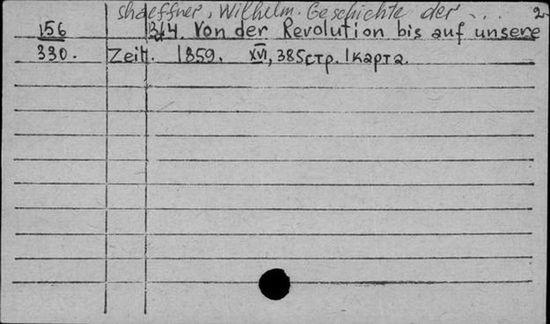 shaeffner, Wilhelm. Geschichte der ... 2
156 Bd4. Von der Revolution bis auf unsere
330. Zeit. 1859. XVI, 385стр. 1карта.